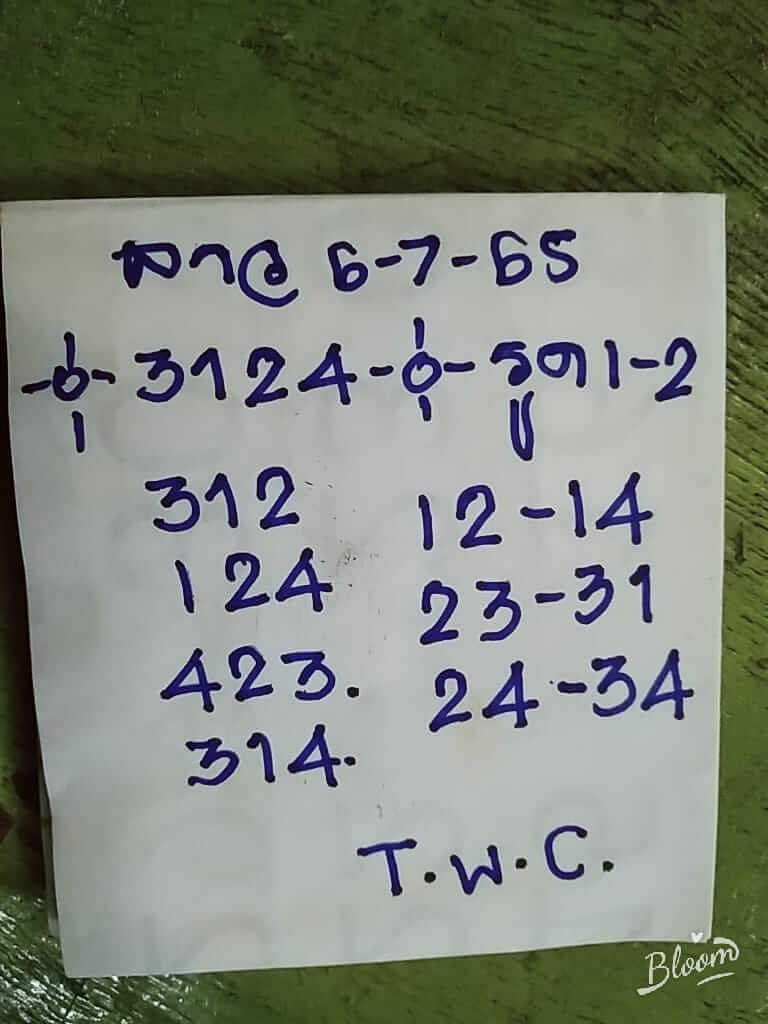 ลาว 6-7-65
3124 รูด 1-2
312 12-14
124 23-31
423. 24-34
314.
T.W.C.
Bloom